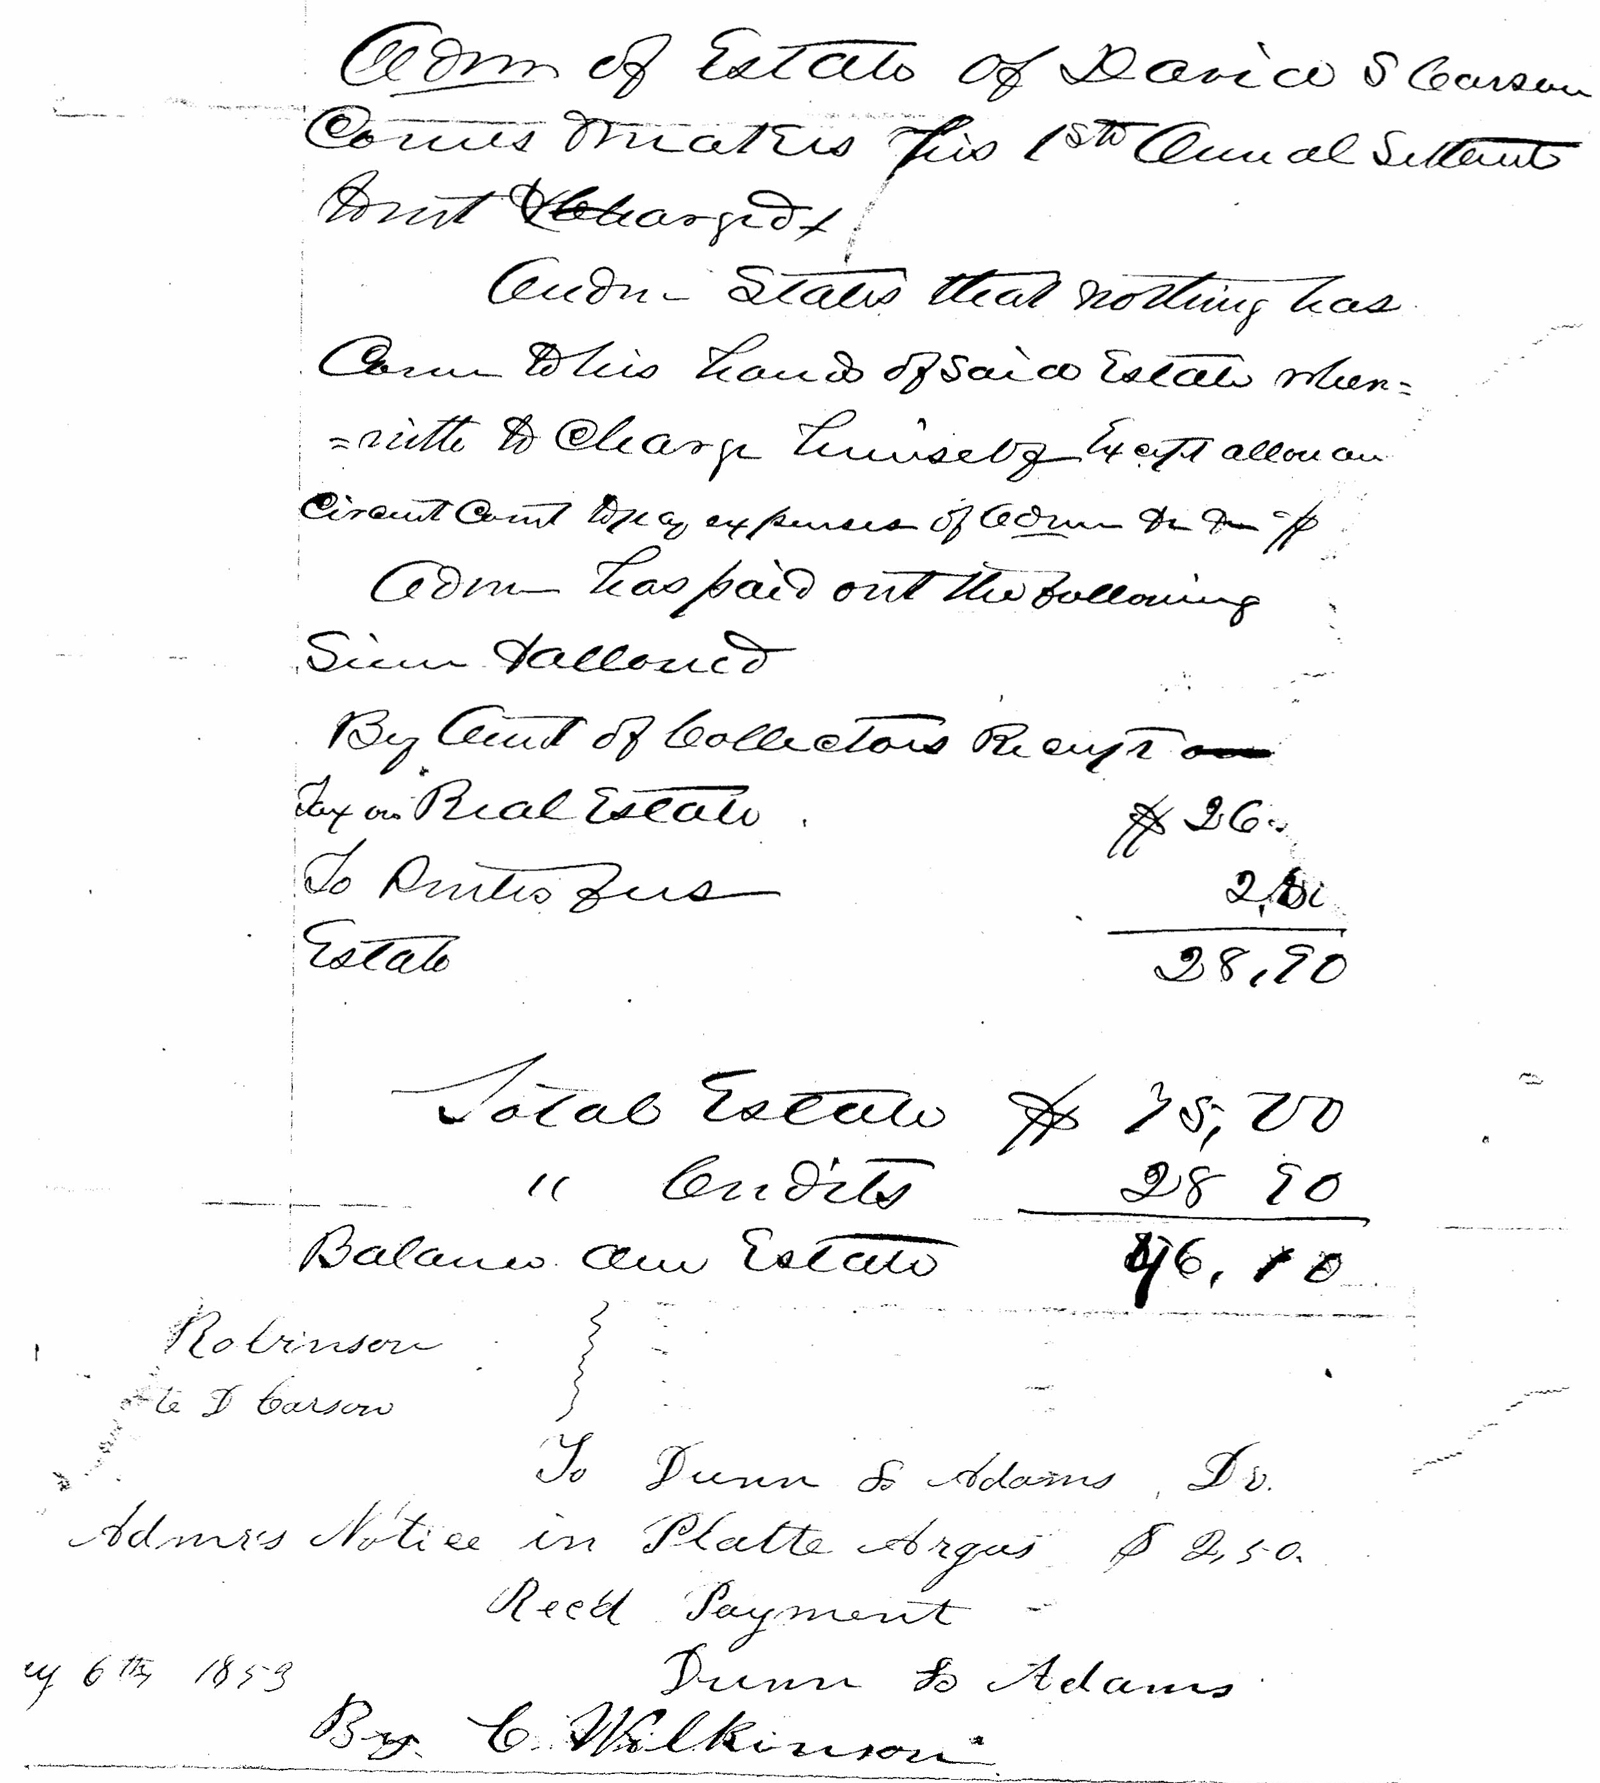 Adm of Estate of David S Carson
Comes & makes his 1st Annual Settlemt
to wit & Charged
Adm States that nothing has
Come to his hands of Said Estate wher=
=with to Charge himself Except allowan
Circuit Court to pay expenses of Adm
Adm has paid out the following
Sum & allowed
By Amt of Collectors Receipt
Tax on Real Estate $26
To Printers fees 2,
Estate 28,90
Total Estate $ 75,00
" Credits 28 90
Balance Estate 46,10
Robinson
D Carson
To Dunn & Adams, Dr.
Admr's Notice in Platte Argus $ 2,50.
Rec'd Payment
Dunn & Adams
y 6th 1853
By C. Wilkinson